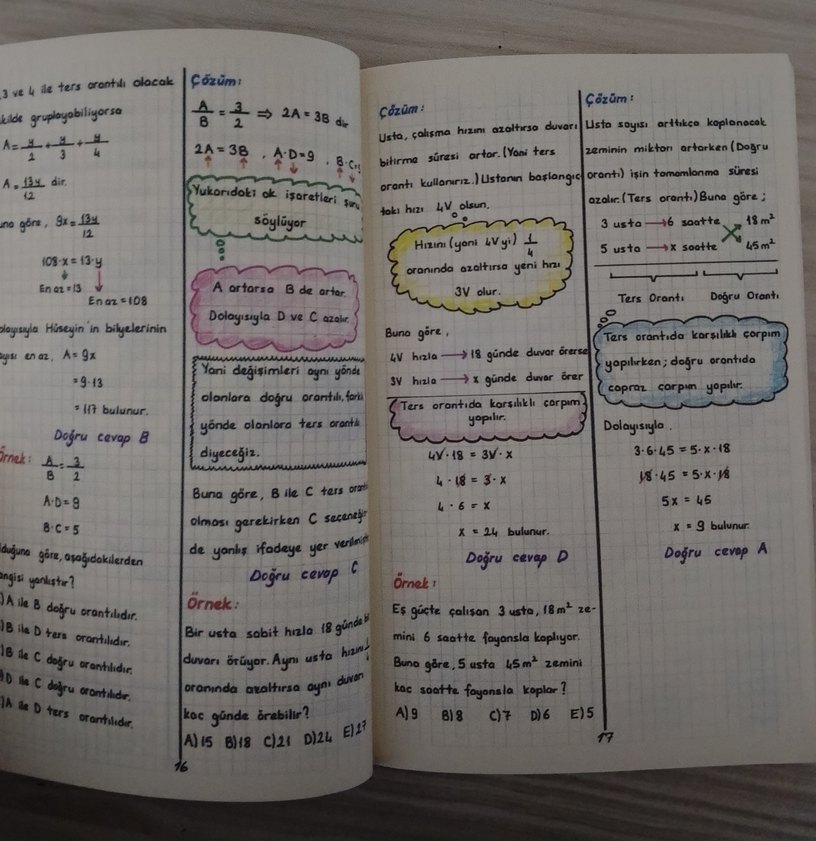 3 ve 4 ile ters orantılı olacak
gruplayabiliyorsa
A = y/2 + y/3 + y/4
A = 13y/12 dir.
göre, 9x = 13y/12
108·x = 13·y
En az = 13
En az = 108
Hüseyin'in bilyelerinin
en az, A = 9x
= 9·13
= 117 bulunur.
Doğru cevap B
Örnek: A/B = 3/2
A·D = 9
B·C = 5
göre, aşağıdakilerden
yanlıştır?
A ile B doğru orantılıdır.
B ile D ters orantılıdır.
B ile C doğru orantılıdır.
D ile C doğru orantılıdır.
A ile D ters orantılıdır.
Çözüm:
A/B = 3/2 ⇒ 2A = 3B dir
2A = 3B , A·D = 9 , B·C=5
Yukarıdaki ok işaretleri şunu
söylüyor
A artarsa B de artar.
Dolayısıyla D ve C azalır.
Yani değişimleri aynı yönde
olanlara doğru orantılı, farklı
yönde olanlara ters orantılı
diyeceğiz.
Buna göre, B ile C ters orantılı
olması gerekirken C seçeneğin
de yanlış ifadeye yer verilmiştir
Doğru cevap C
Örnek:
Bir usta sabit hızla 18 günde bir
duvarı örüyor. Aynı usta hızını 1/4
oranında azaltırsa aynı duvarı
kaç günde örebilir?
A) 15 B) 18 C) 21 D) 24 E) 27
16
Çözüm:
Usta, çalışma hızını azaltırsa duvarı
bitirme süresi artar. (Yani ters
orantı kullanırız.) Ustanın başlangıç
taki hızı 4V olsun.
Hızını (yani 4V yi) 1/4
oranında azaltırsa yeni hızı
3V olur.
Buna göre,
4V hızla → 18 günde duvar örerse
3V hızla → x günde duvar örer
Ters orantıda karşılıklı çarpım
yapılır.
4V·18 = 3V·x
4·18 = 3·x
4·6 = x
x = 24 bulunur.
Doğru cevap D
Örnek:
Eş güçte çalışan 3 usta, 18 m² ze-
mini 6 saatte fayansla kaplıyor.
Buna göre, 5 usta 45 m² zemini
kaç saatte fayansla kaplar?
A) 9 B) 8 C) 7 D) 6 E) 5
Çözüm:
Usta sayısı arttıkça kaplanacak
zeminin miktarı artarken (Doğru
orantı) işin tamamlanma süresi
azalır. (Ters orantı) Buna göre;
3 usta → 6 saatte 18 m²
5 usta → x saatte 45 m²
Ters Orantı Doğru Orantı
Ters orantıda karşılıklı çarpım
yapılırken; doğru orantıda
çapraz çarpım yapılır.
Dolayısıyla,
3·6·45 = 5·x·18
18·45 = 5·x·18
5x = 45
x = 9 bulunur.
Doğru cevap A
17